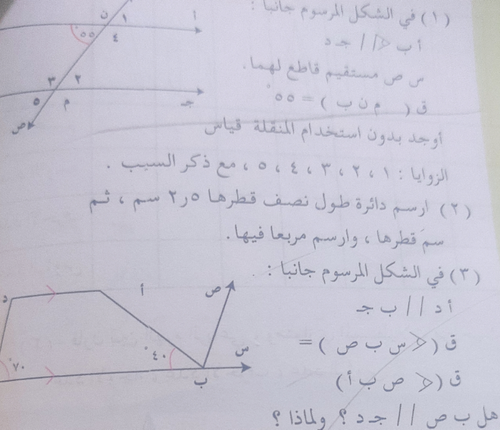 (١) في الشكل المرسوم جانبا :
أ ب // جـ د
س ص مستقيم قاطع لهما.
ق ( م ن ب ) = ٥٥°
أوجد بدون استخدام المنقلة قياس
الزوايا : ١ ، ٢ ، ٣ ، ٤ ، ٥ ، مع ذكر السبب .
(٢) ارسم دائرة طول نصف قطرها ٢٫٥ سم ، ثم
سمَ قطرها ، وارسم مربعا فيها.
(٣) في الشكل المرسوم جانبا :
أ د // ب جـ
ق (> س ب ص ) =
ق (> ص ب أ)
هل ب ص // جـ د ؟ ولماذا ؟
ن ١ أ
٥٥° ٤
٣ ٢
٥ م جـ
ص
د أ ص
٧٠° ٤٠° س
ب